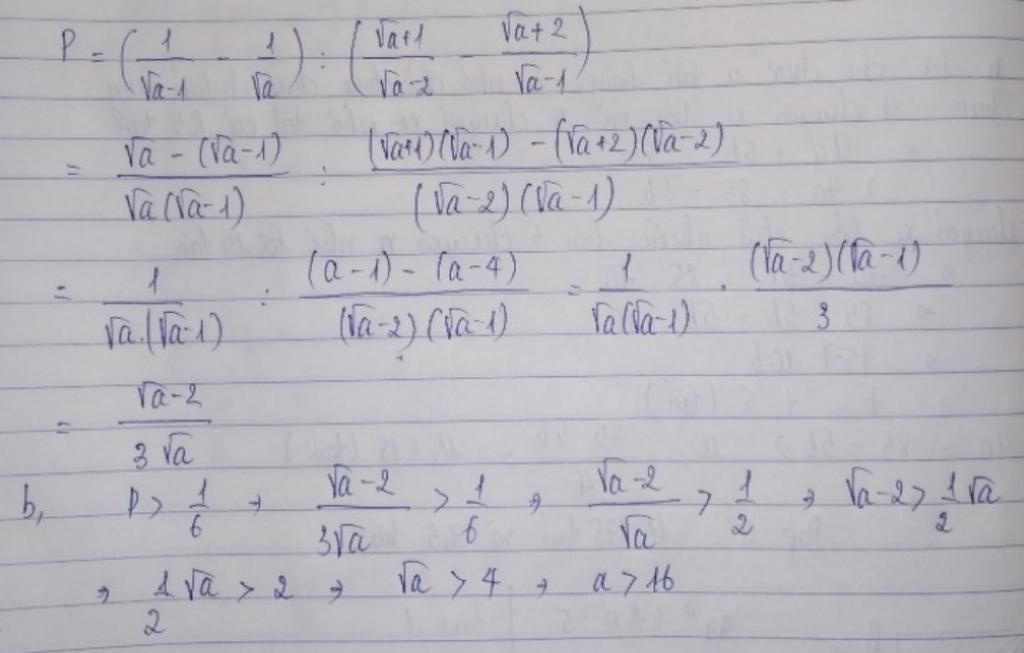 P = (1/(√a-1) - 1/√a) : ((√a+1)/(√a-2) - (√a+2)/(√a-1))
= (√a - (√a-1))/(√a(√a-1)) : ((√a+1)(√a-1) - (√a+2)(√a-2))/((√a-2)(√a-1))
= 1/(√a.(√a-1)) : ((a-1) - (a-4))/((√a-2)(√a-1)) = 1/(√a(√a-1)) . ((√a-2)(√a-1))/3
= (√a-2)/(3√a)
b, P > 1/6 → (√a-2)/(3√a) > 1/6 → (√a-2)/√a > 1/2 → √a-2 > 1/2 √a
→ 1/2 √a > 2 → √a > 4 → a > 16